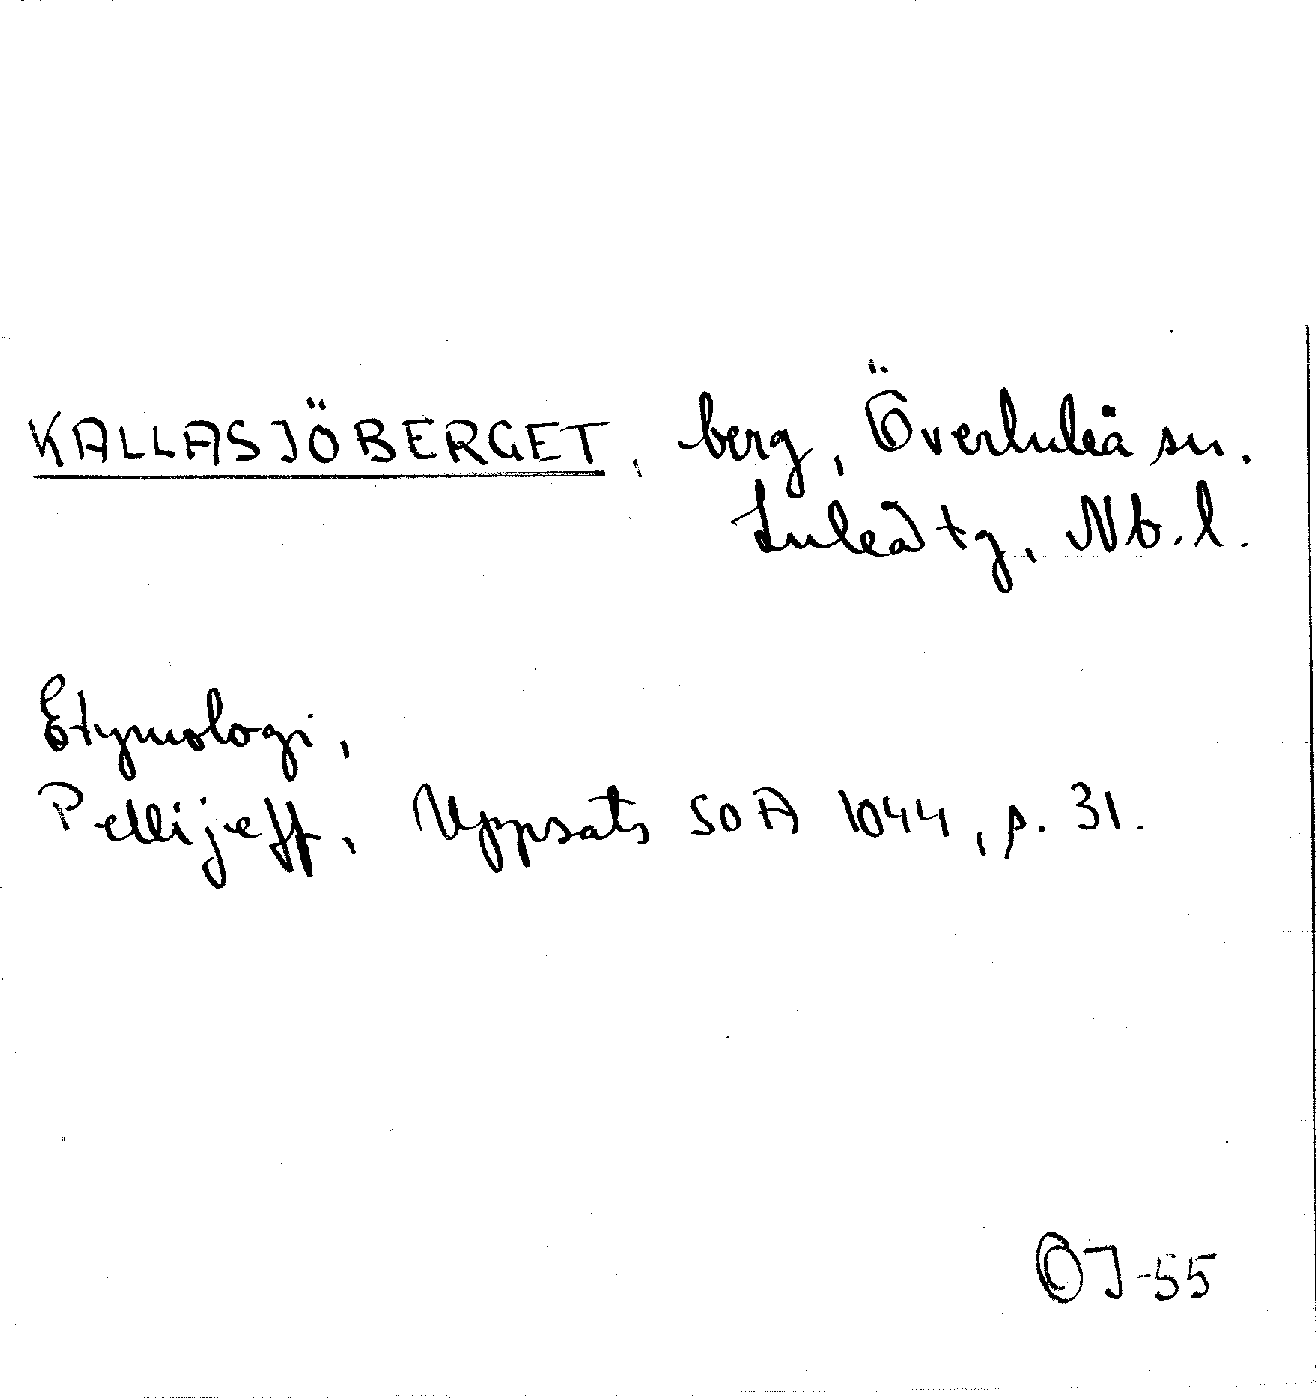 KALLASJÖBERGET, berg, Överluleå sn.
Luleå tg, Nb. l.
Etymologi,
Pellijeff, Uppsats SOA 1044, p. 31.
OJ-55